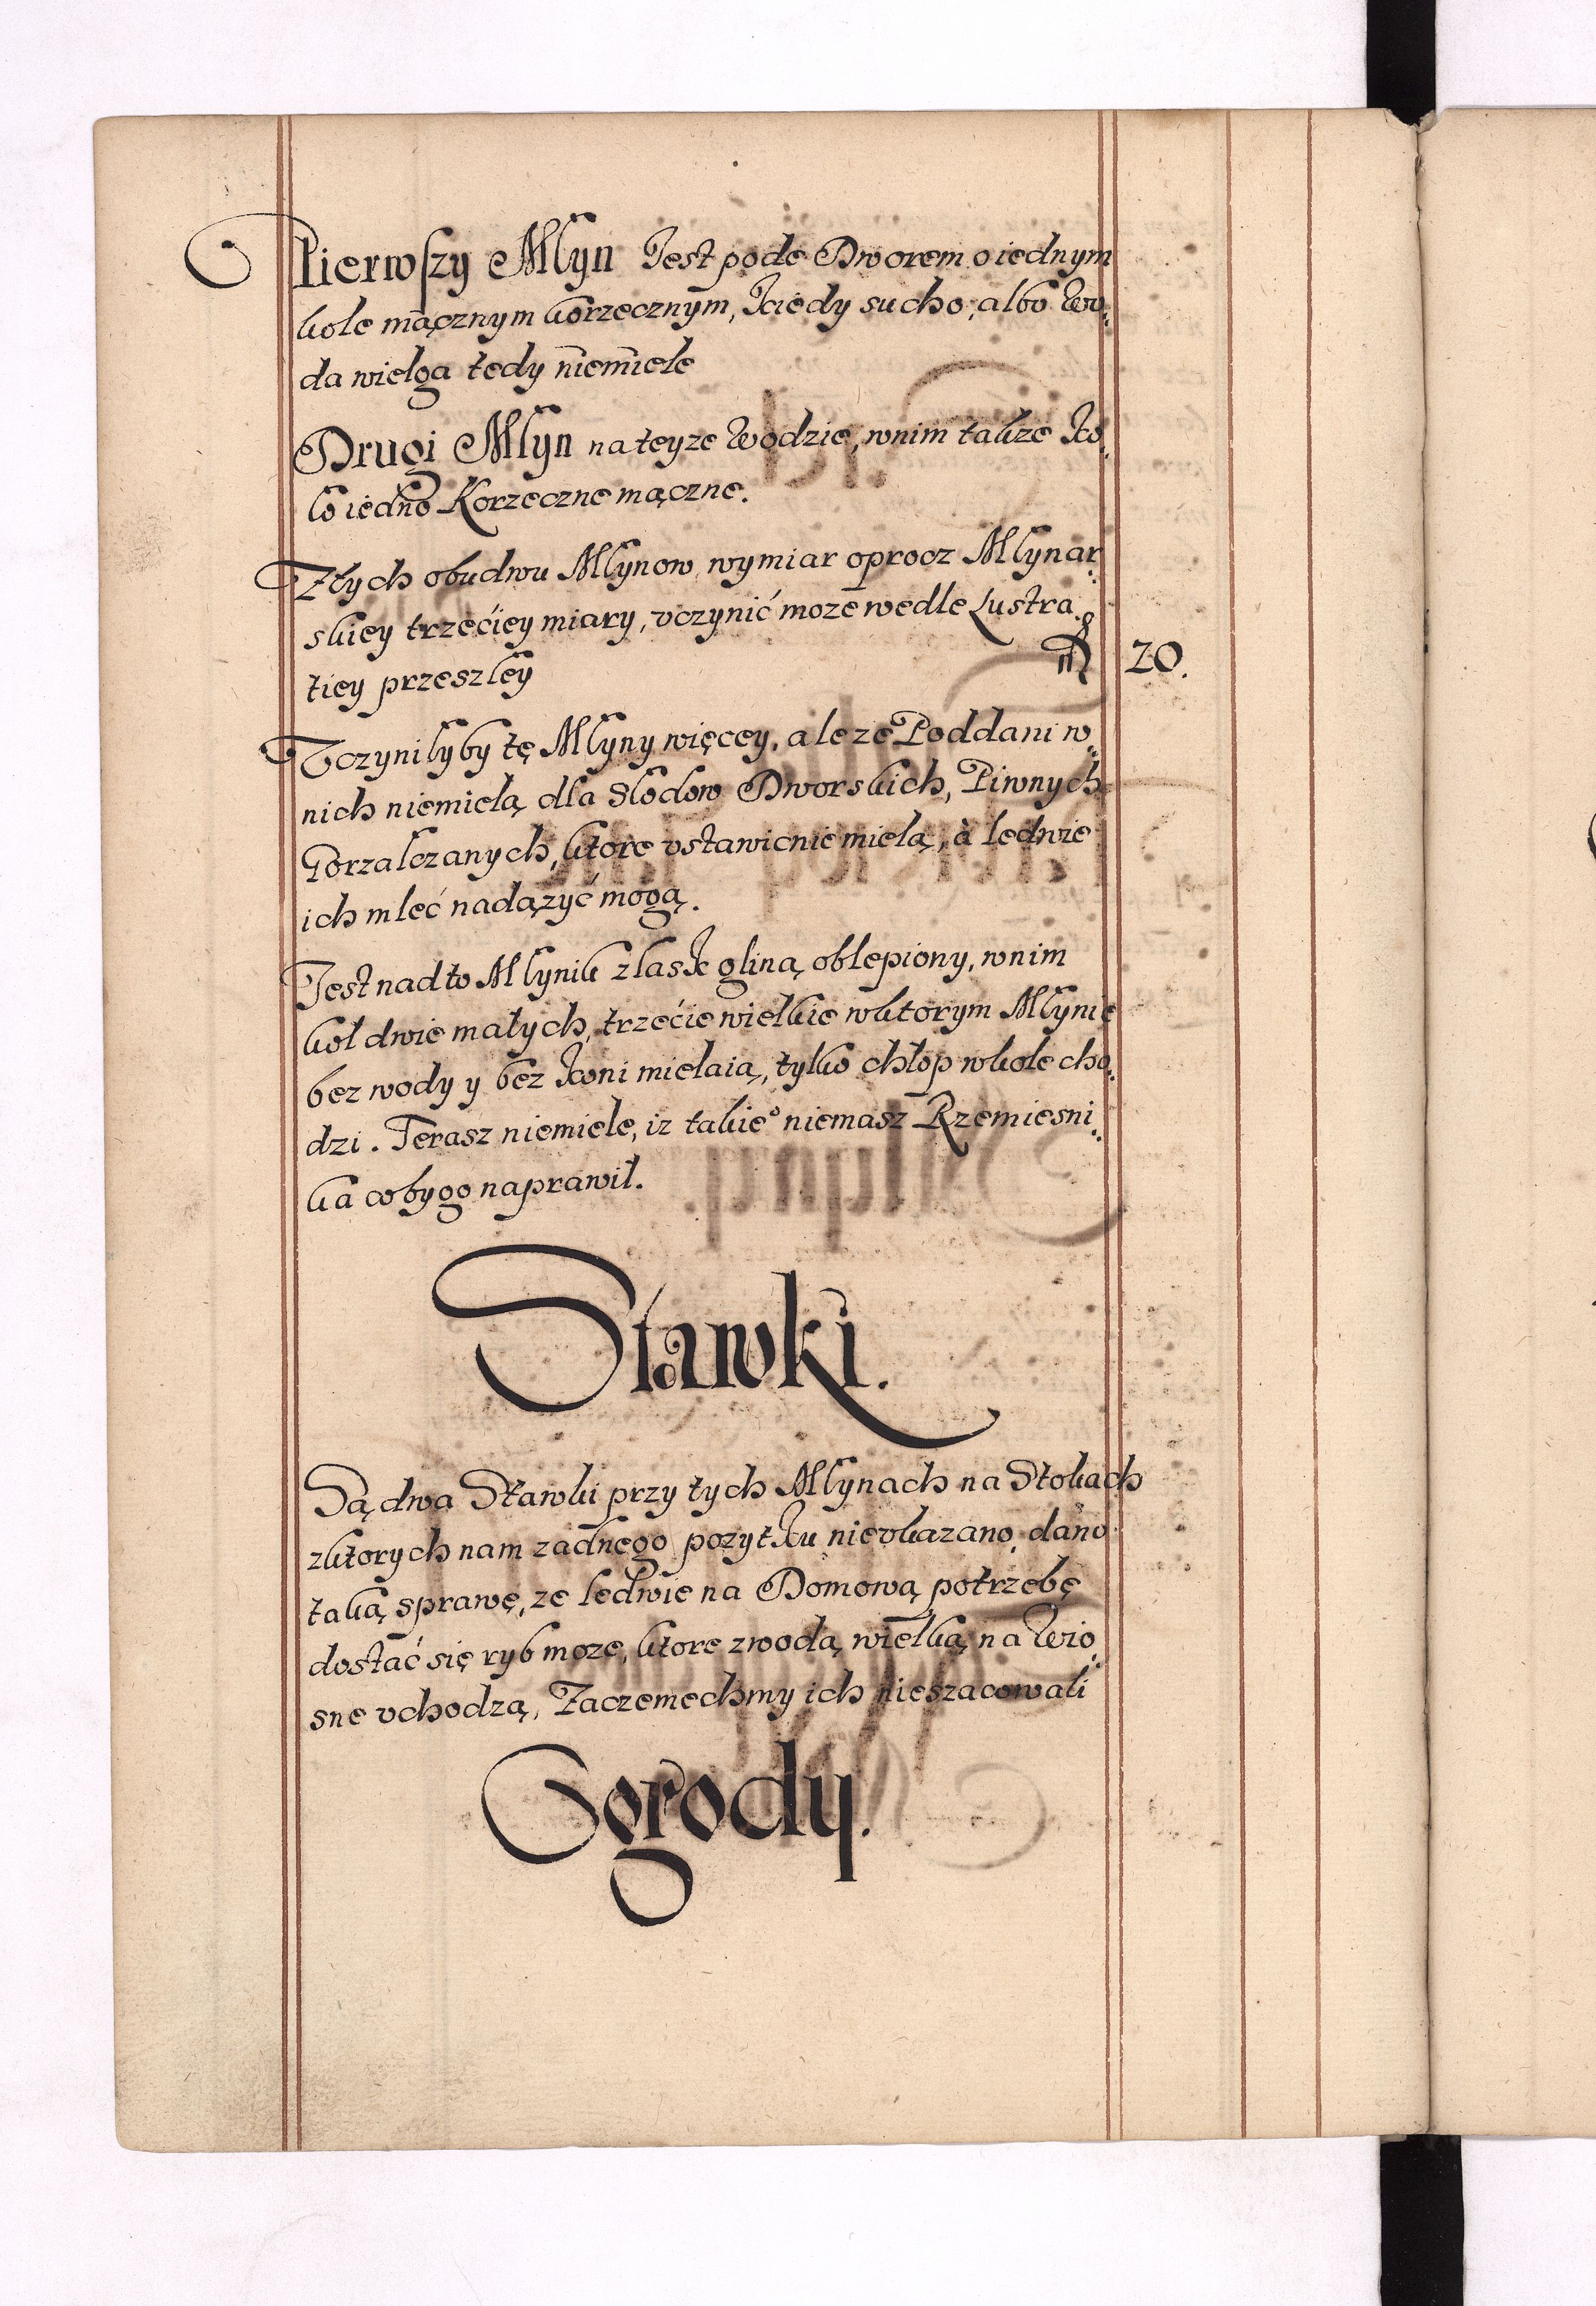 Pierwszy Młyn Jest pode Dworem o iednym
kole mącznym korzecznym, kiedy sucho, albo Wo„
da wielga tedy niemiele
Drugi Młyn na teyze Wodzie, wnim takze Ko„
ło iedno Korzeczne mączne.
Ztych obudwu Młynow, wymiar oprocz Młynar„
skiey trzeciey miary, vczynić moze wedle Lustra„
tiey przeszłey
20.
Vczyniłyby tę Młyny więcey, ale ze Poddani w„
nich niemielą dla Słodow Dworskich, Piwnych
Gorzalczanych, ktore vstawicnie mielą, à ledwie
ich mleć nadązyć mogą.
Jest nad to Młynik zlask gliną oblepiony, wnim
koł dwie małych, trzecie wielkie wktorym Młynie
bez wody y bez koni mielaią, tylko chłop wkole cho„
dzi. Terasz niemiele, iz takieº niemasz Rzemiesni„
ka coby go naprawił.
Stawki.
Są dwa Stawki przy tych Młynach na Stokach
zktorych nam zadnego pozytku nievkazano, dano
taką sprawę, ze ledwie na Domową potrzebę
dostać się ryb moze, ktore zwodą wielką na Wio„
sne vchodzą, Zaczemechmy ich nieszacowali
Ogrody.